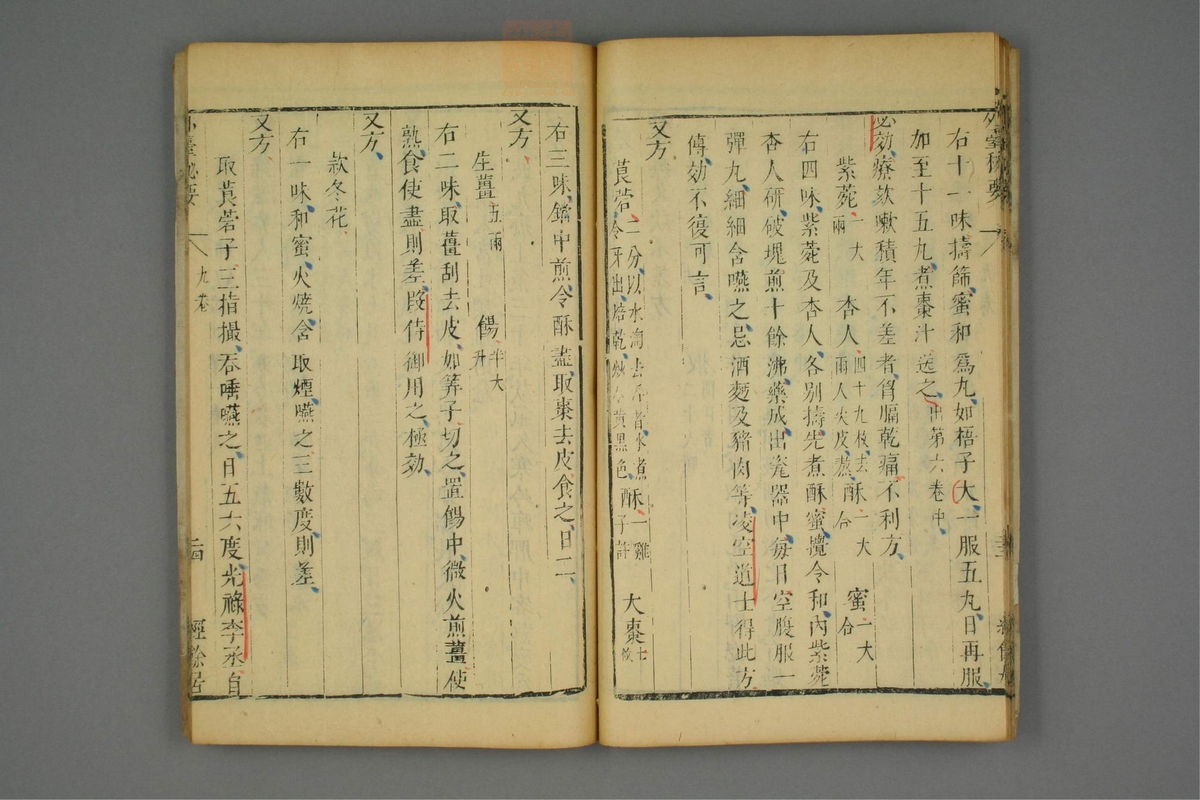 右十一味擣篩蜜和爲丸如梧子大一服五丸日再服
加至十五丸煮棗汁送之出第六卷中
必効療欬嗽積年不差者胷膈乾痛不利方
紫菀一大兩 杏人四十九枚去兩人尖皮熬 酥一大合 蜜一大合
右四味紫菀及杏人各別擣先煮酥蜜攪令和內紫菀
杏人研破塊煎十餘沸藥成出瓷器中每日空腹服一
彈丸細細含嚥之忌酒麪及豬肉等凌空道士得此方
傳効不復可言
又方
莨菪二分以水淘去浮者水煮令牙出焙乾炒令黃黑色 酥一雞子許 大棗七枚
右三味鐺中煎令酥盡取棗去皮食之日二
又方
生薑五兩 餳半大升
右二味取薑刮去皮如筭子切之置餳中微火煎薑使
熟食使盡則差段侍御用之極効
又方
款冬花
右一味和蜜火燒含取煙嚥之三數度則差
又方
取莨菪子三指撮吞唾嚥之日五六度光祿李丞自
外臺祕要 九卷 二十四 經餘居